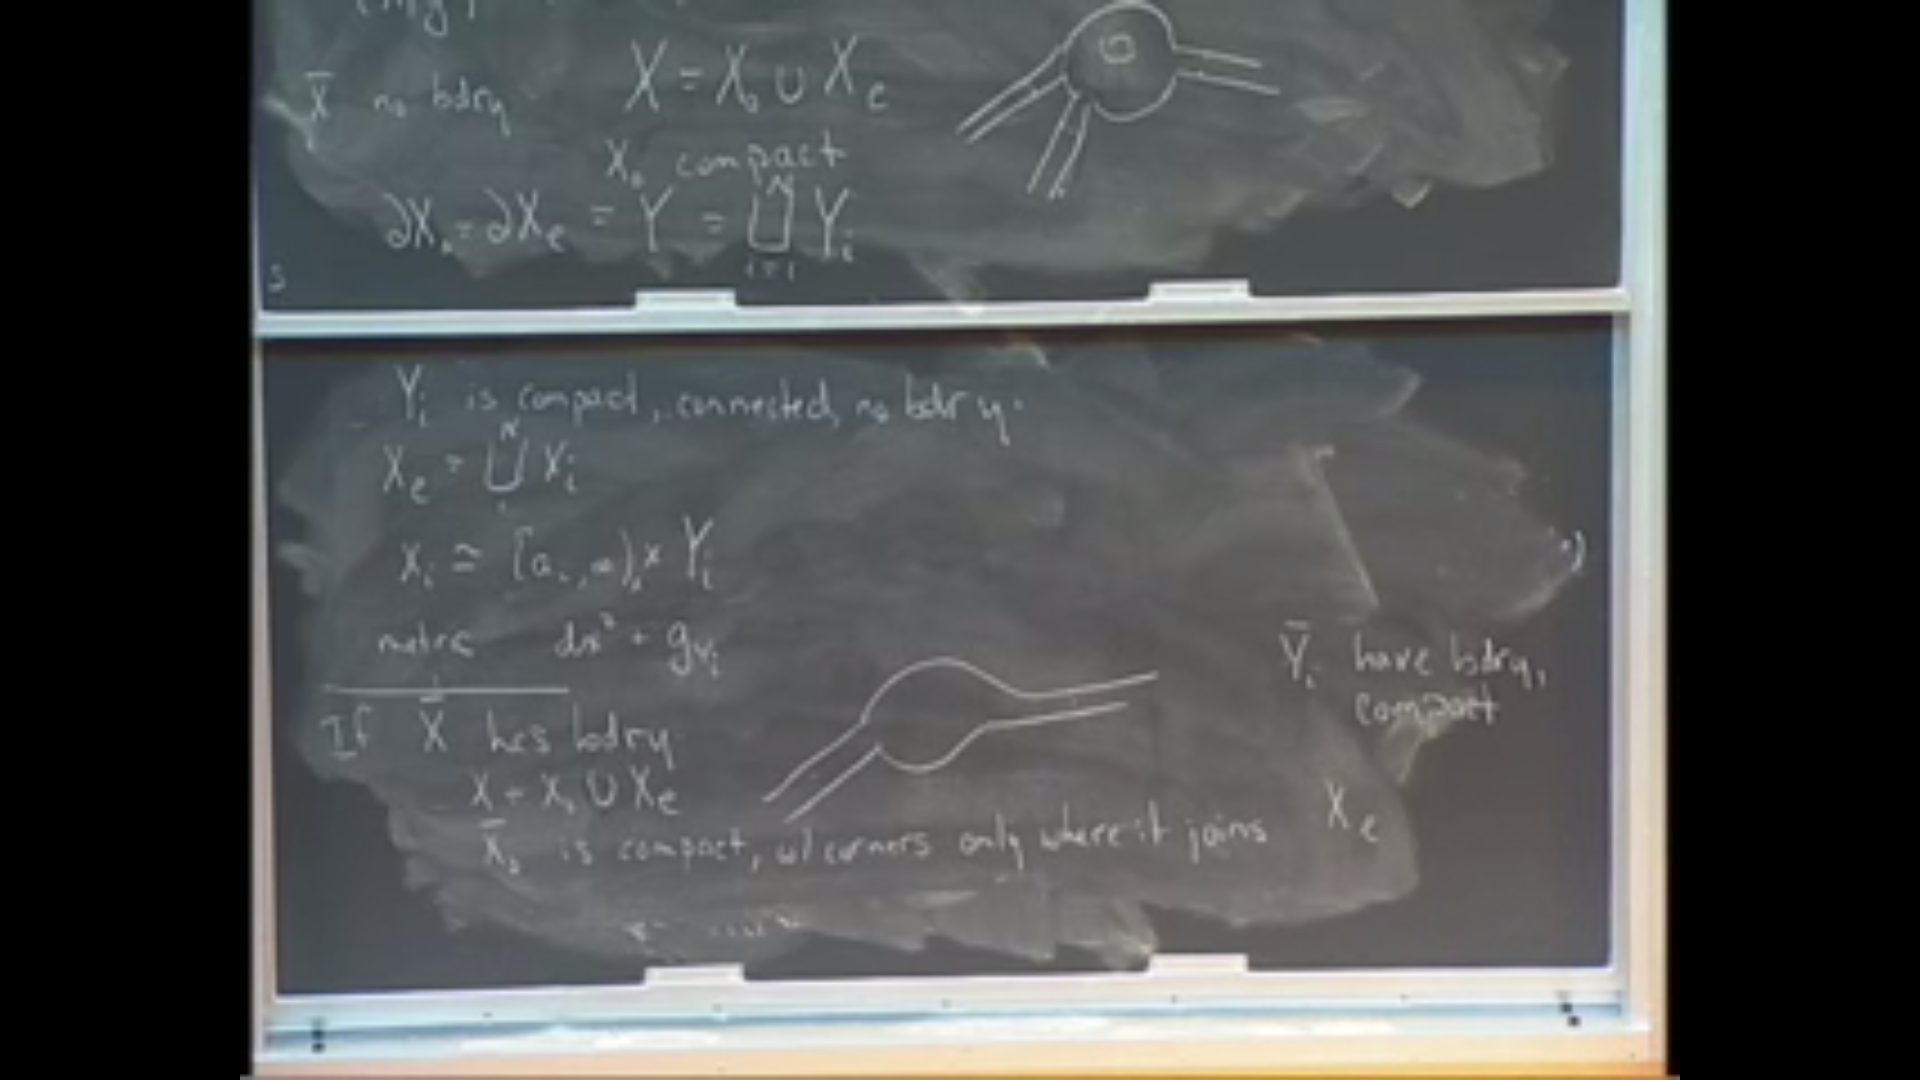 X̄ no bdry
X = X₀ ∪ Xₑ
X₀ compact
∂X₀ = ∂Xₑ = Y = ⨆ᵢ₌₁ᴺ Yᵢ
Yᵢ is compact, connected, no bdry.
Xₑ = ⨆₁ᴺ Xᵢ
Xᵢ ≅ [aᵢ, ∞)ₓ × Yᵢ
metric dx² + g_{Yᵢ}
If X̄ has bdry
X = X₀ ∪ Xₑ
X̄₀ is compact, w/ corners only where it joins Xₑ
Ȳᵢ have bdry,
compact